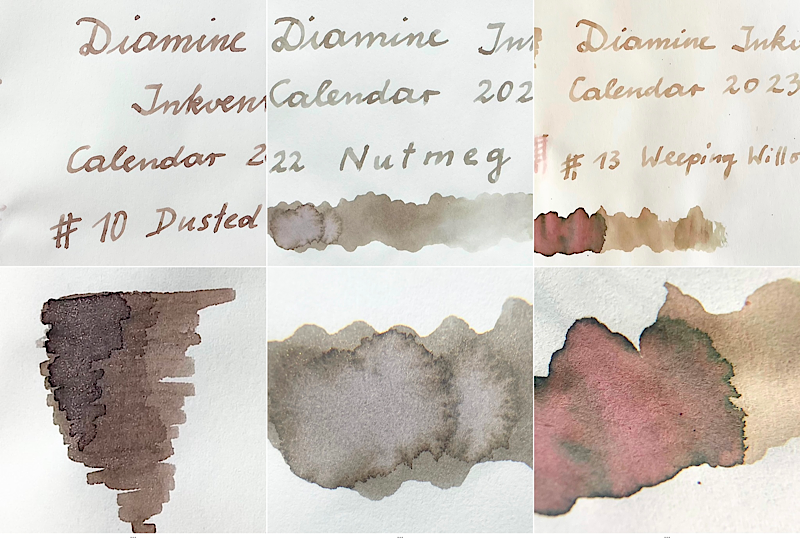 Diamine
Inkven
Calendar 2
# 10 Dusted
Diamine Ink
Calendar 202
22 Nutmeg
Diamine Inkv
Calendar 2023
# 13 Weeping Willo